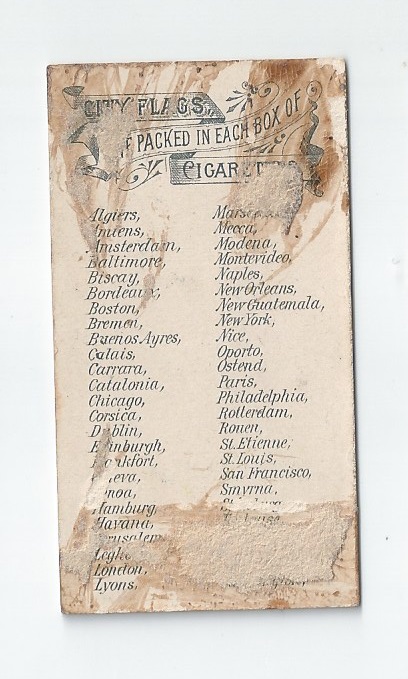 CITY FLAGS
PACKED IN EACH BOX OF
Algiers,
Amsterdam,
Baltimore,
Biscay,
Bordeaux,
Boston,
Bremen,
Buenos Ayres,
Calais,
Carrara,
Catalonia,
Chicago,
Corsica,
Dublin,
Edinburgh,
Hamburg,
Havana,
London,
Lyons,
Mecca,
Modena,
Montevideo,
Naples,
New Orleans,
New Guatemala,
New York,
Nice,
Oporto,
Ostend,
Paris,
Philadelphia,
Rotterdam,
Rouen,
St. Etienne,
St. Louis,
San Francisco,
Smyrna,